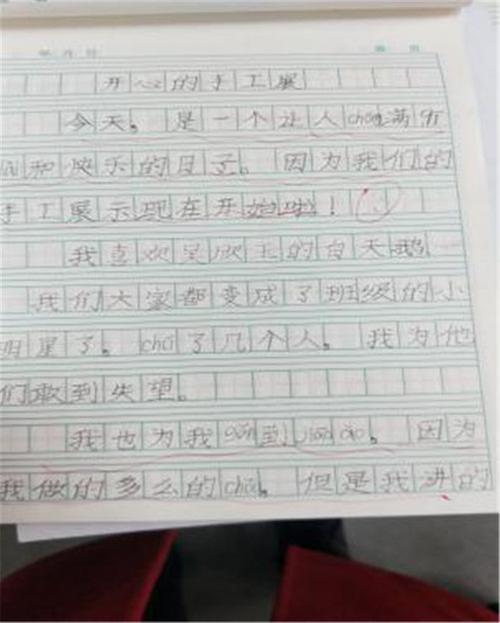 开心的手工展
今天。是一个让人chōng满有
和快乐的日子。因为我们的
手工展示现在开始啦！
我喜欢吴欣玉的白天鹅
我们大家都变成了班级的小
明星了。chú了几个人。我为他
们敢到失望。
我也为我gǎn到jiāo ào。因为
我做的多么的chà。但是我讲的